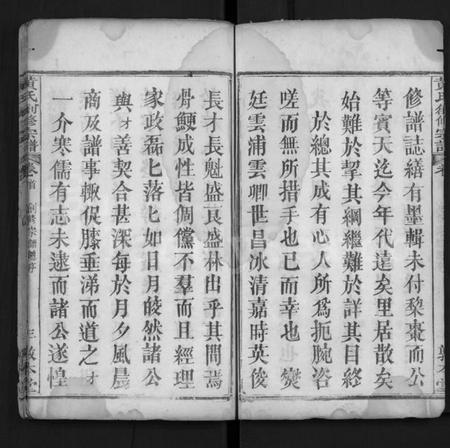 修譜誌繕有墨輯未付棃棗而公
等賓天迄今年代遠矣里居散矣
始難於挈其綱繼難於詳其目終
於總其成有心人所為扼腕咨
嗟而無所措手也已而幸也 燮
廷雲浦雲卿世昌冰清嘉時英俊
長才長魁盛良盛林出乎其間焉
骨鯁成性皆倜儻不羣而且經理
家政磊匕落匕如日月皎然諸公
與才善契合甚深每於月夕風晨
商及譜事輙促膝垂涕而道之才
一介寒儒有志未逮而諸公遂惶
黃氏創修宗譜 卷首
三 敦本堂